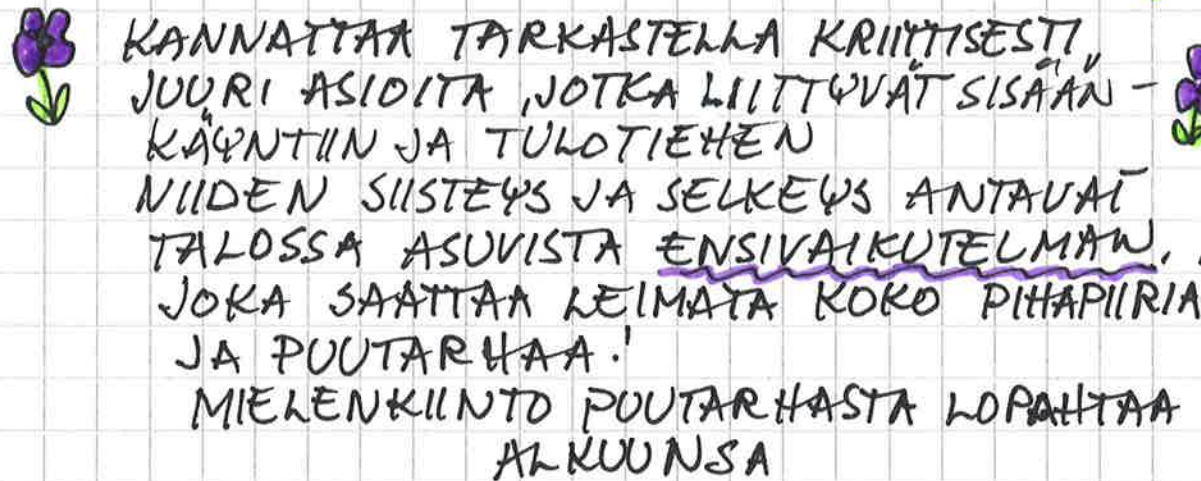 KANNATTAA TARKASTELLA KRIITTISESTI
JUURI ASIOITA, JOTKA LIITTYVÄT SISÄÄN-
KÄYNTIIN JA TULOTIEHEN
NIIDEN SIISTEYS JA SELKEYS ANTAVAT
TALOSSA ASUVISTA ENSIVAIKUTELMAN,
JOKA SAATTAA LEIMATA KOKO PIHAPIIRIÄ
JA PUUTARHAA!
MIELENKIINTO PUUTARHASTA LOPAHTAA
ALKUUNSA